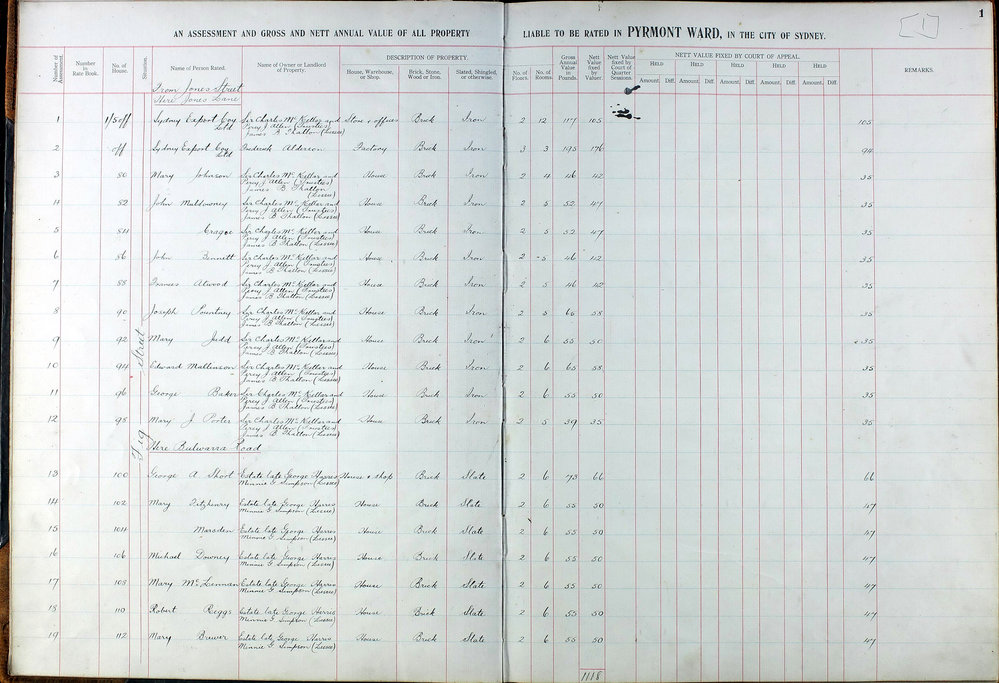 1
[1]
AN ASSESSMENT AND GROSS AND NETT ANNUAL VALUE OF ALL PROPERTY LIABLE TO BE RATED IN PYRMONT WARD, IN THE CITY OF SYDNEY.
Number of Assessment. Number in Rate Book. No. of House. Situation. Name of Person Rated. Name of Owner or Landlord of Property. DESCRIPTION OF PROPERTY. House, Warehouse, or Shop. Brick, Stone, Wood or Iron. Slated, Shingled, or otherwise. No. of Floors. No. of Rooms. Gross Annual Value in Pounds. Nett Value fixed by Valuer. Nett Value fixed by Court of Quarter Sessions. NETT VALUE FIXED BY COURT OF APPEAL. REMARKS.
HELD HELD HELD HELD HELD
Amount. Diff. Amount. Diff. Amount. Diff. Amount. Diff. Amount. Diff.
From Jones Street
Here Jones Lane
Fig Street
1 1/5 off Sydney Export Coy Ltd Sir Charles McKellar and Store & offices Brick Iron 2 12 117 105 105
Percy J. Allen (Trustees)
James B Thatton (Lessee)
2 off Sydney Export Coy Ltd Frederick Alderson Factory Brick Iron 3 3 195 176 94
3 80 Mary Johnson Sir Charles McKellar and House Brick Iron 2 4 46 42 35
Percy J. Allen (Trustees)
James B Thatton (Lessee)
4 82 John Muldowney Sir Charles McKellar and House Brick Iron 2 5 52 47 35
Percy J. Allen (Trustees)
James B Thatton (Lessee)
5 84 Cragoe Sir Charles McKellar and House Brick Iron 2 5 52 47 35
Percy J. Allen (Trustees)
James B Thatton (Lessee)
6 86 John Bennett Sir Charles McKellar and House Brick Iron 2 5 46 42 35
Percy J. Allen (Trustees)
James B Thatton (Lessee)
7 88 Frances Atwood Sir Charles McKellar and House Brick Iron 2 5 46 42 35
Percy J. Allen (Trustees)
James B Thatton (Lessee)
8 90 Joseph Pountney Sir Charles McKellar and House Brick Iron 2 5 65 58 35
Percy J. Allen (Trustees)
James B Thatton (Lessee)
9 92 Mary Judd Sir Charles McKellar and House Brick Iron 2 6 55 50 35
Percy J. Allen (Trustees)
James B Thatton (Lessee)
10 94 Edward Mallinson Sir Charles McKellar and House Brick Iron 2 6 65 58 35
Percy J. Allen (Trustees)
James B Thatton (Lessee)
11 96 George Baker Sir Charles McKellar and House Brick Iron 2 6 55 50 35
Percy J. Allen (Trustees)
James B Thatton (Lessee)
12 98 Mary J Porter Sir Charles McKellar and House Brick Iron 2 5 39 35 35
Percy J. Allen (Trustees)
James B Thatton (Lessee)
Here Bulwarra Road
13 100 George A Short Estate late George Harris House & shop Brick Slate 2 6 73 66 66
Minnie G. Simpson (Lessee)
14 102 Mary Fitzhenry Estate late George Harris House Brick Slate 2 6 55 50 47
Minnie G. Simpson (Lessee)
15 104 Marsden Estate late George Harris House Brick Slate 2 6 55 50 47
Minnie G. Simpson (Lessee)
16 106 Michael Downey Estate late George Harris House Brick Slate 2 6 55 50 47
Minnie G. Simpson (Lessee)
17 108 Mary McLennan Estate late George Harris House Brick Slate 2 6 55 50 47
Minnie G. Simpson (Lessee)
18 110 Robert Riggs Estate late George Harris House Brick Slate 2 6 55 50 47
Minnie G. Simpson (Lessee)
19 112 Mary Brewer Estate late George Harris House Brick Slate 2 6 55 50 47
Minnie G. Simpson (Lessee)
1118